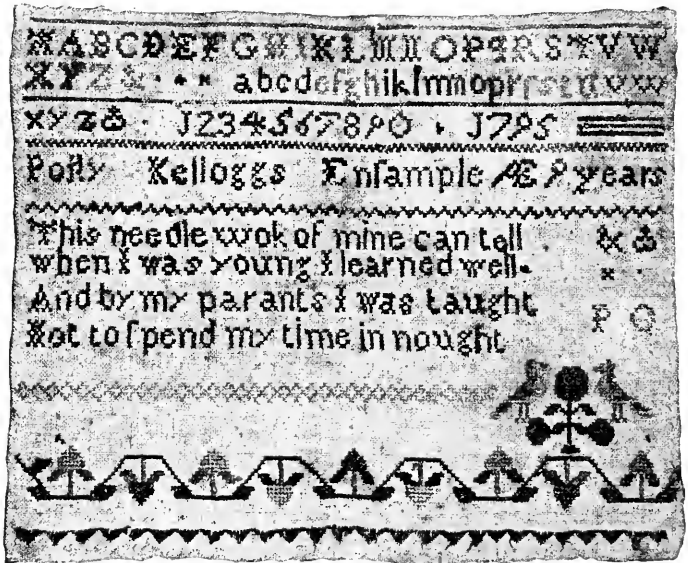 ABCDEFGHIKLMNOPQRSTVW
XYZ& abcdefghiklmnoprstuvw
xyz& 1234567890 1795
Polly Kelloggs Enſample Æ 9 years
This needle wok of mine can tell &
when I was young I learned well
And by my parants I was taught P Q
Not to ſpend my time in nought